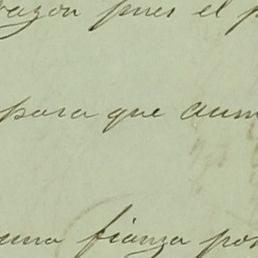 razon pues el p
para que aum
una fianza por